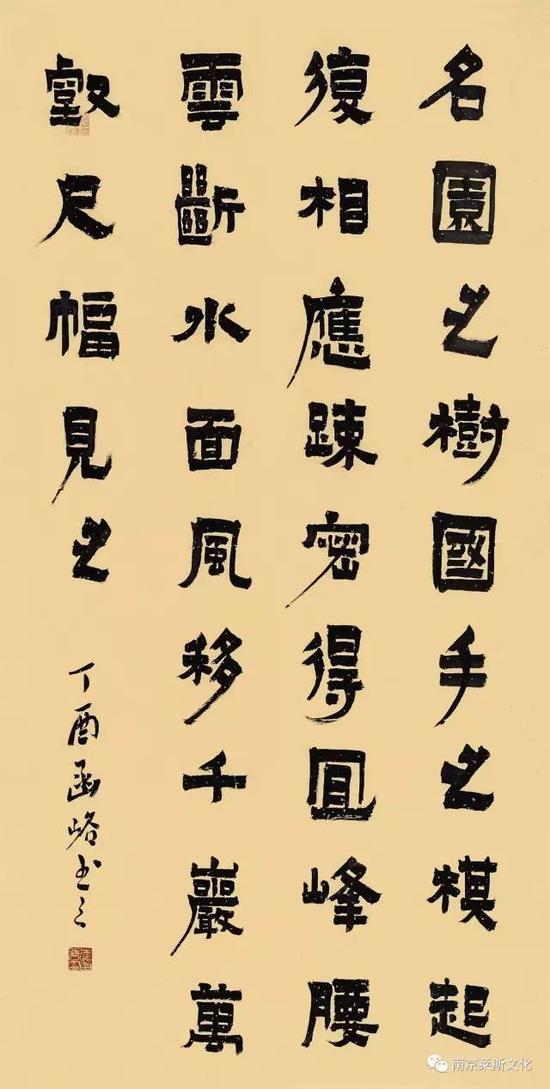 名園之樹國手之模起
復相應疎密得宜峰腰
雲斷水面風移千巖萬
壑尺幅見之
丁酉函峪書之
南京莱斯文化